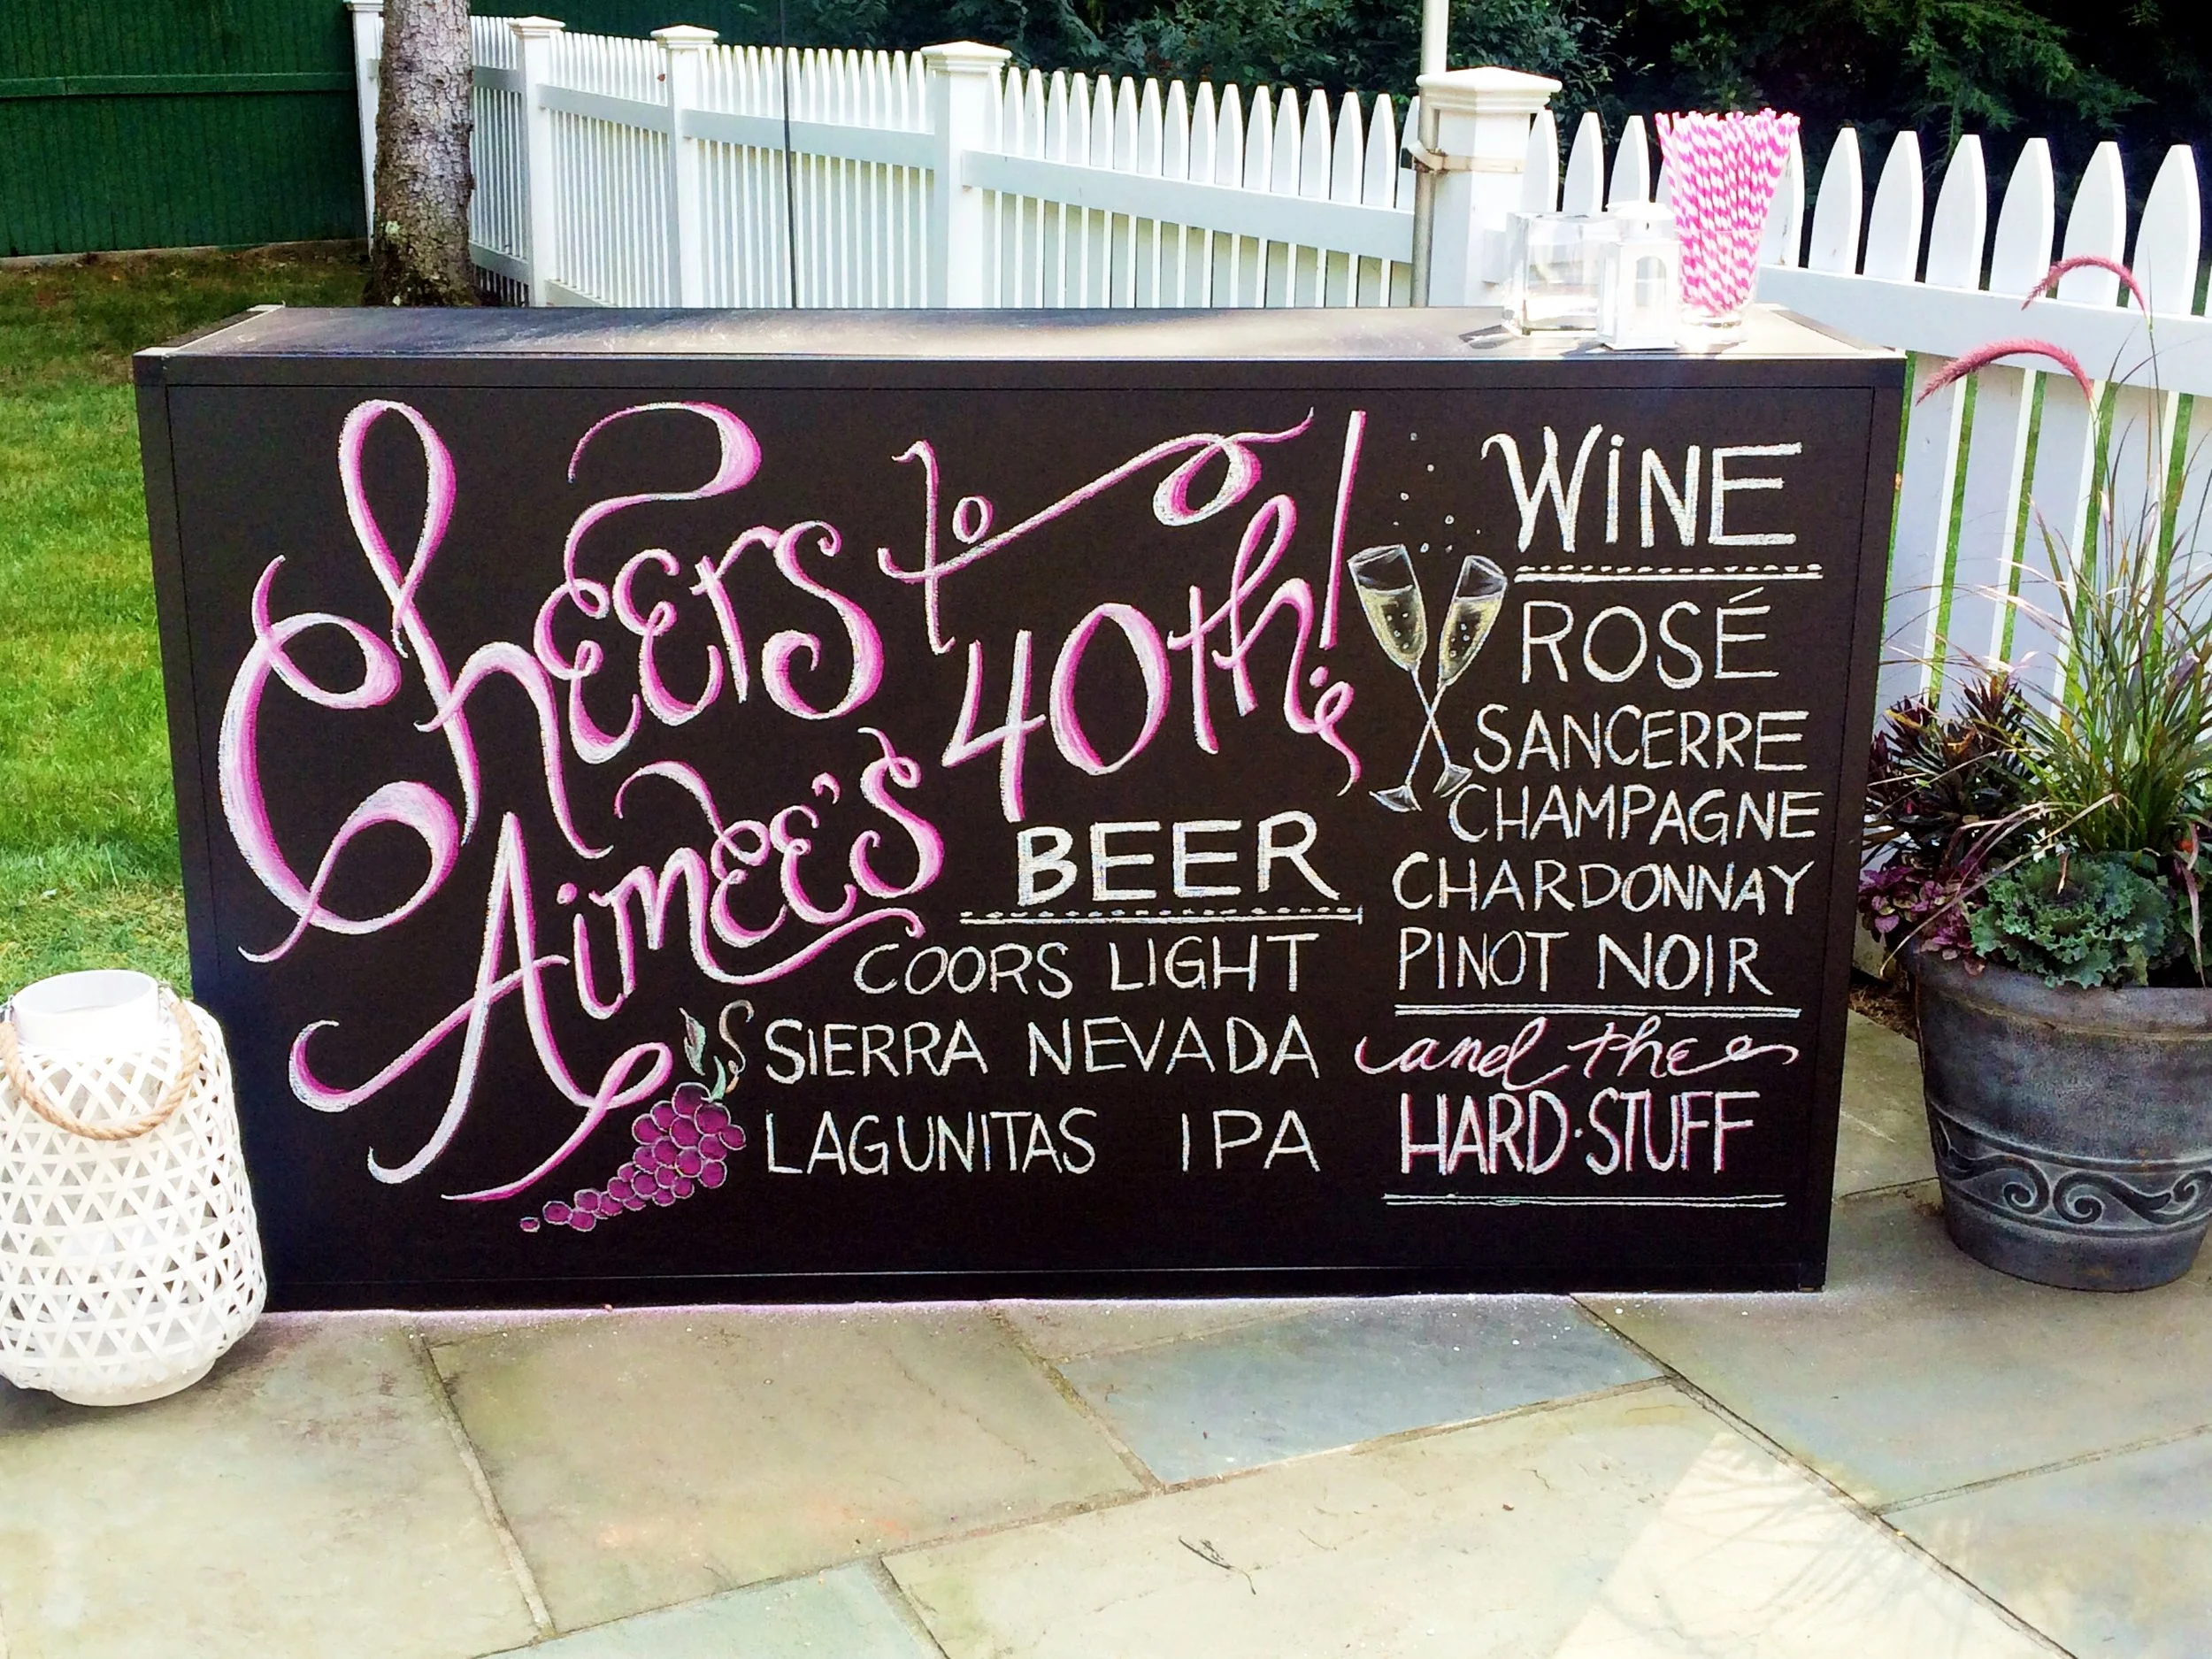 Cheers to
Aimee's 40th!
BEER
COORS LIGHT
SIERRA NEVADA
LAGUNITAS IPA
WiNE
ROSÉ
SANCERRE
CHAMPAGNE
CHARDONNAY
PINOT NOIR
and the
HARD·STUFF